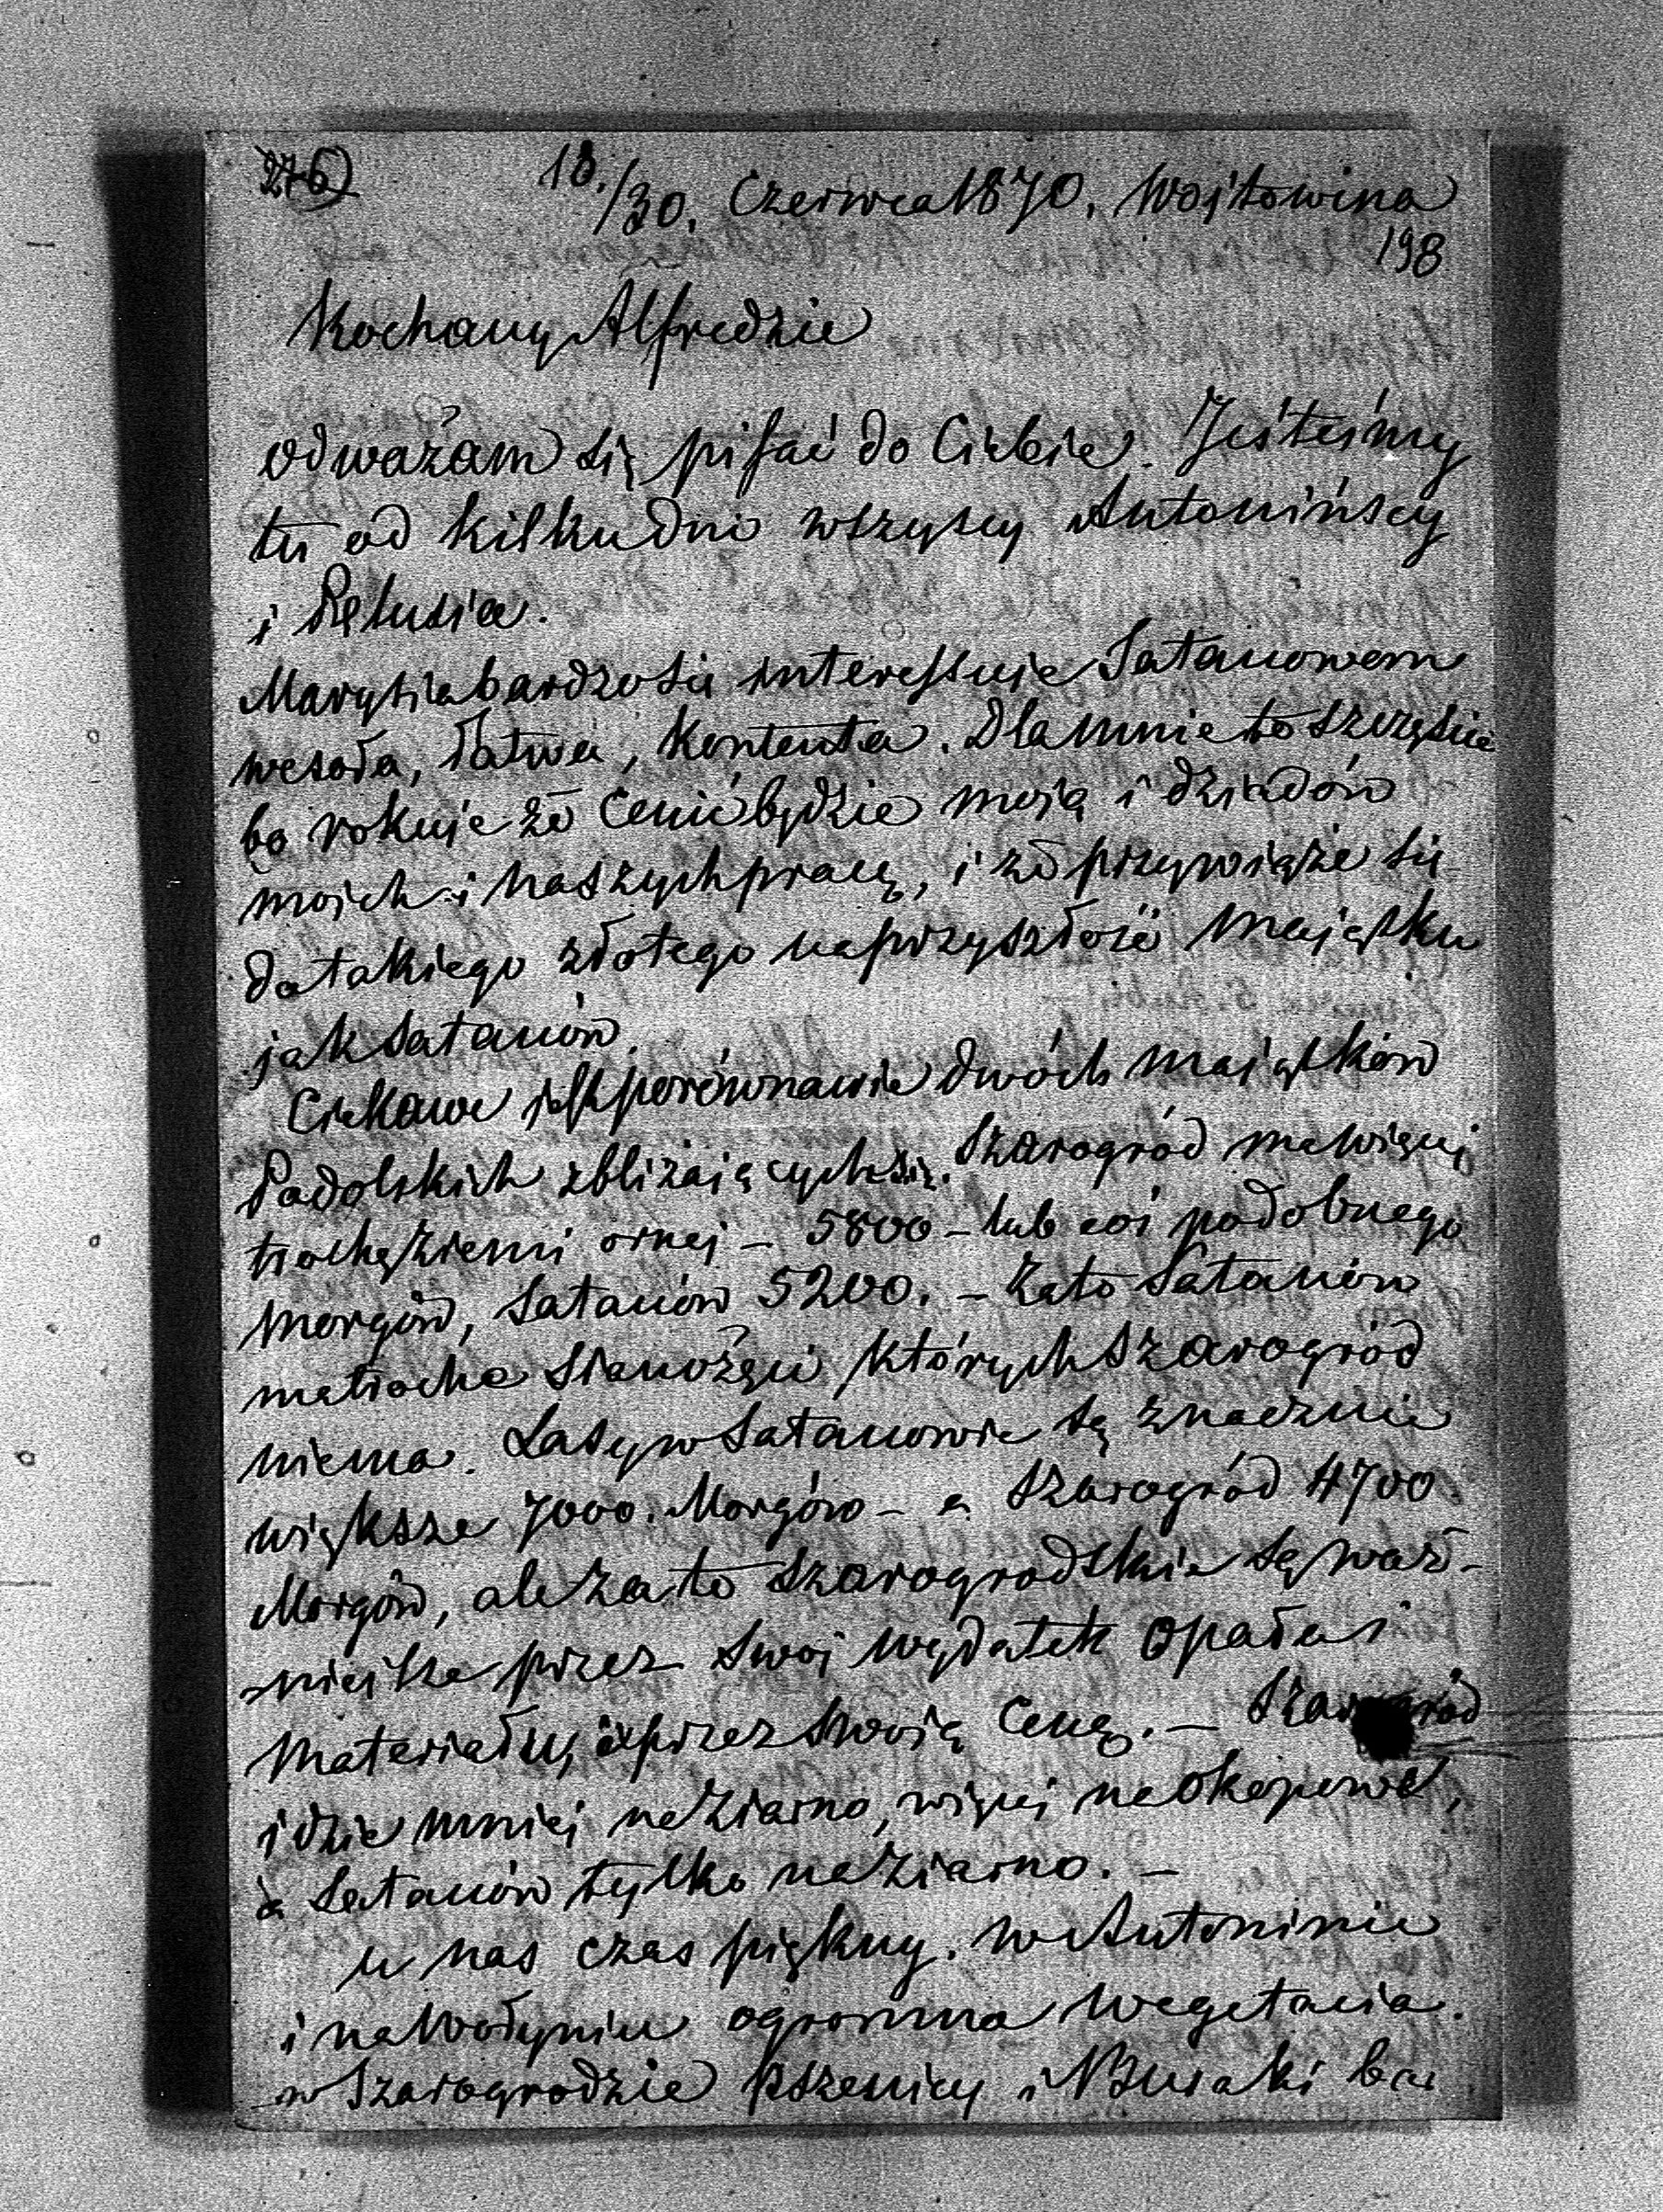 276
18./30. Czerwca 1870. Wojtowina
198
Kochany Alfredzie
odważam się pisać do Ciebie. Jesteśmy
tu od kilku dni wszyscy Antonińscy
i Retusia.
Marysia bardzo się interessuje Satanowem
wesoła, łatwa, kontenta. Dla mnie to szczęście
bo rokuje że cenić będzie moją i dziadów
moich i naszych pracę, i że przywiąże się
do takiego złotego na przyszłość majątku
jak Satanów.
Ciekawe jest porównanie dwóch majątków
Podolskich zbliżających się. Szarogród ma więcej
trochę ziemi ornej – 5800 – lub coś podobnego
morgów, Satanów 5200. – Zato Satanów
ma trochę sianożęci których Szarogród
niema. Lasy w Satanowie są znacznie
większe 7000. Morgów – a Szarogród 4700.
Morgów, ale za to Szarogrodzkie są waż-
niejsze przez swoj wydatek opału i
materiału, i przez swoją cenę. – Szarogród
idzie mniej na ziarno, więcej na okopowe,
a Satanów tylko na ziarno. –
u nas czas piękny. w Antoninie
i na Wołyniu ogromna wegetacia.
w Szarogrodzie pszenicy i Buraki ba